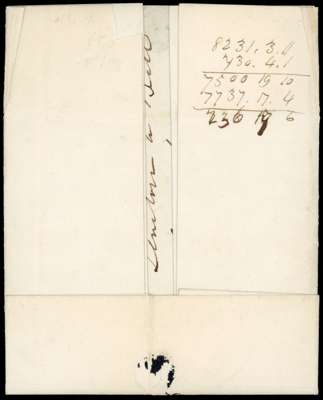 8231. 3. 11
730. 4. 1
7500 19 10
7737. 17. 4
236 17 6